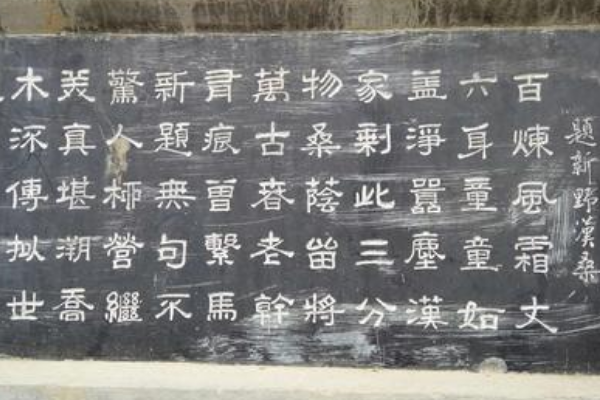 題新野漢桑
百煉風霜丈
六身童童如
盖淨囂塵漢
家剩此三分
物桑蔭畱將
萬古春老幹
有痕曾繫馬
新題無句不
驚人柳營繼
美真堪溯喬
木流傳拟世